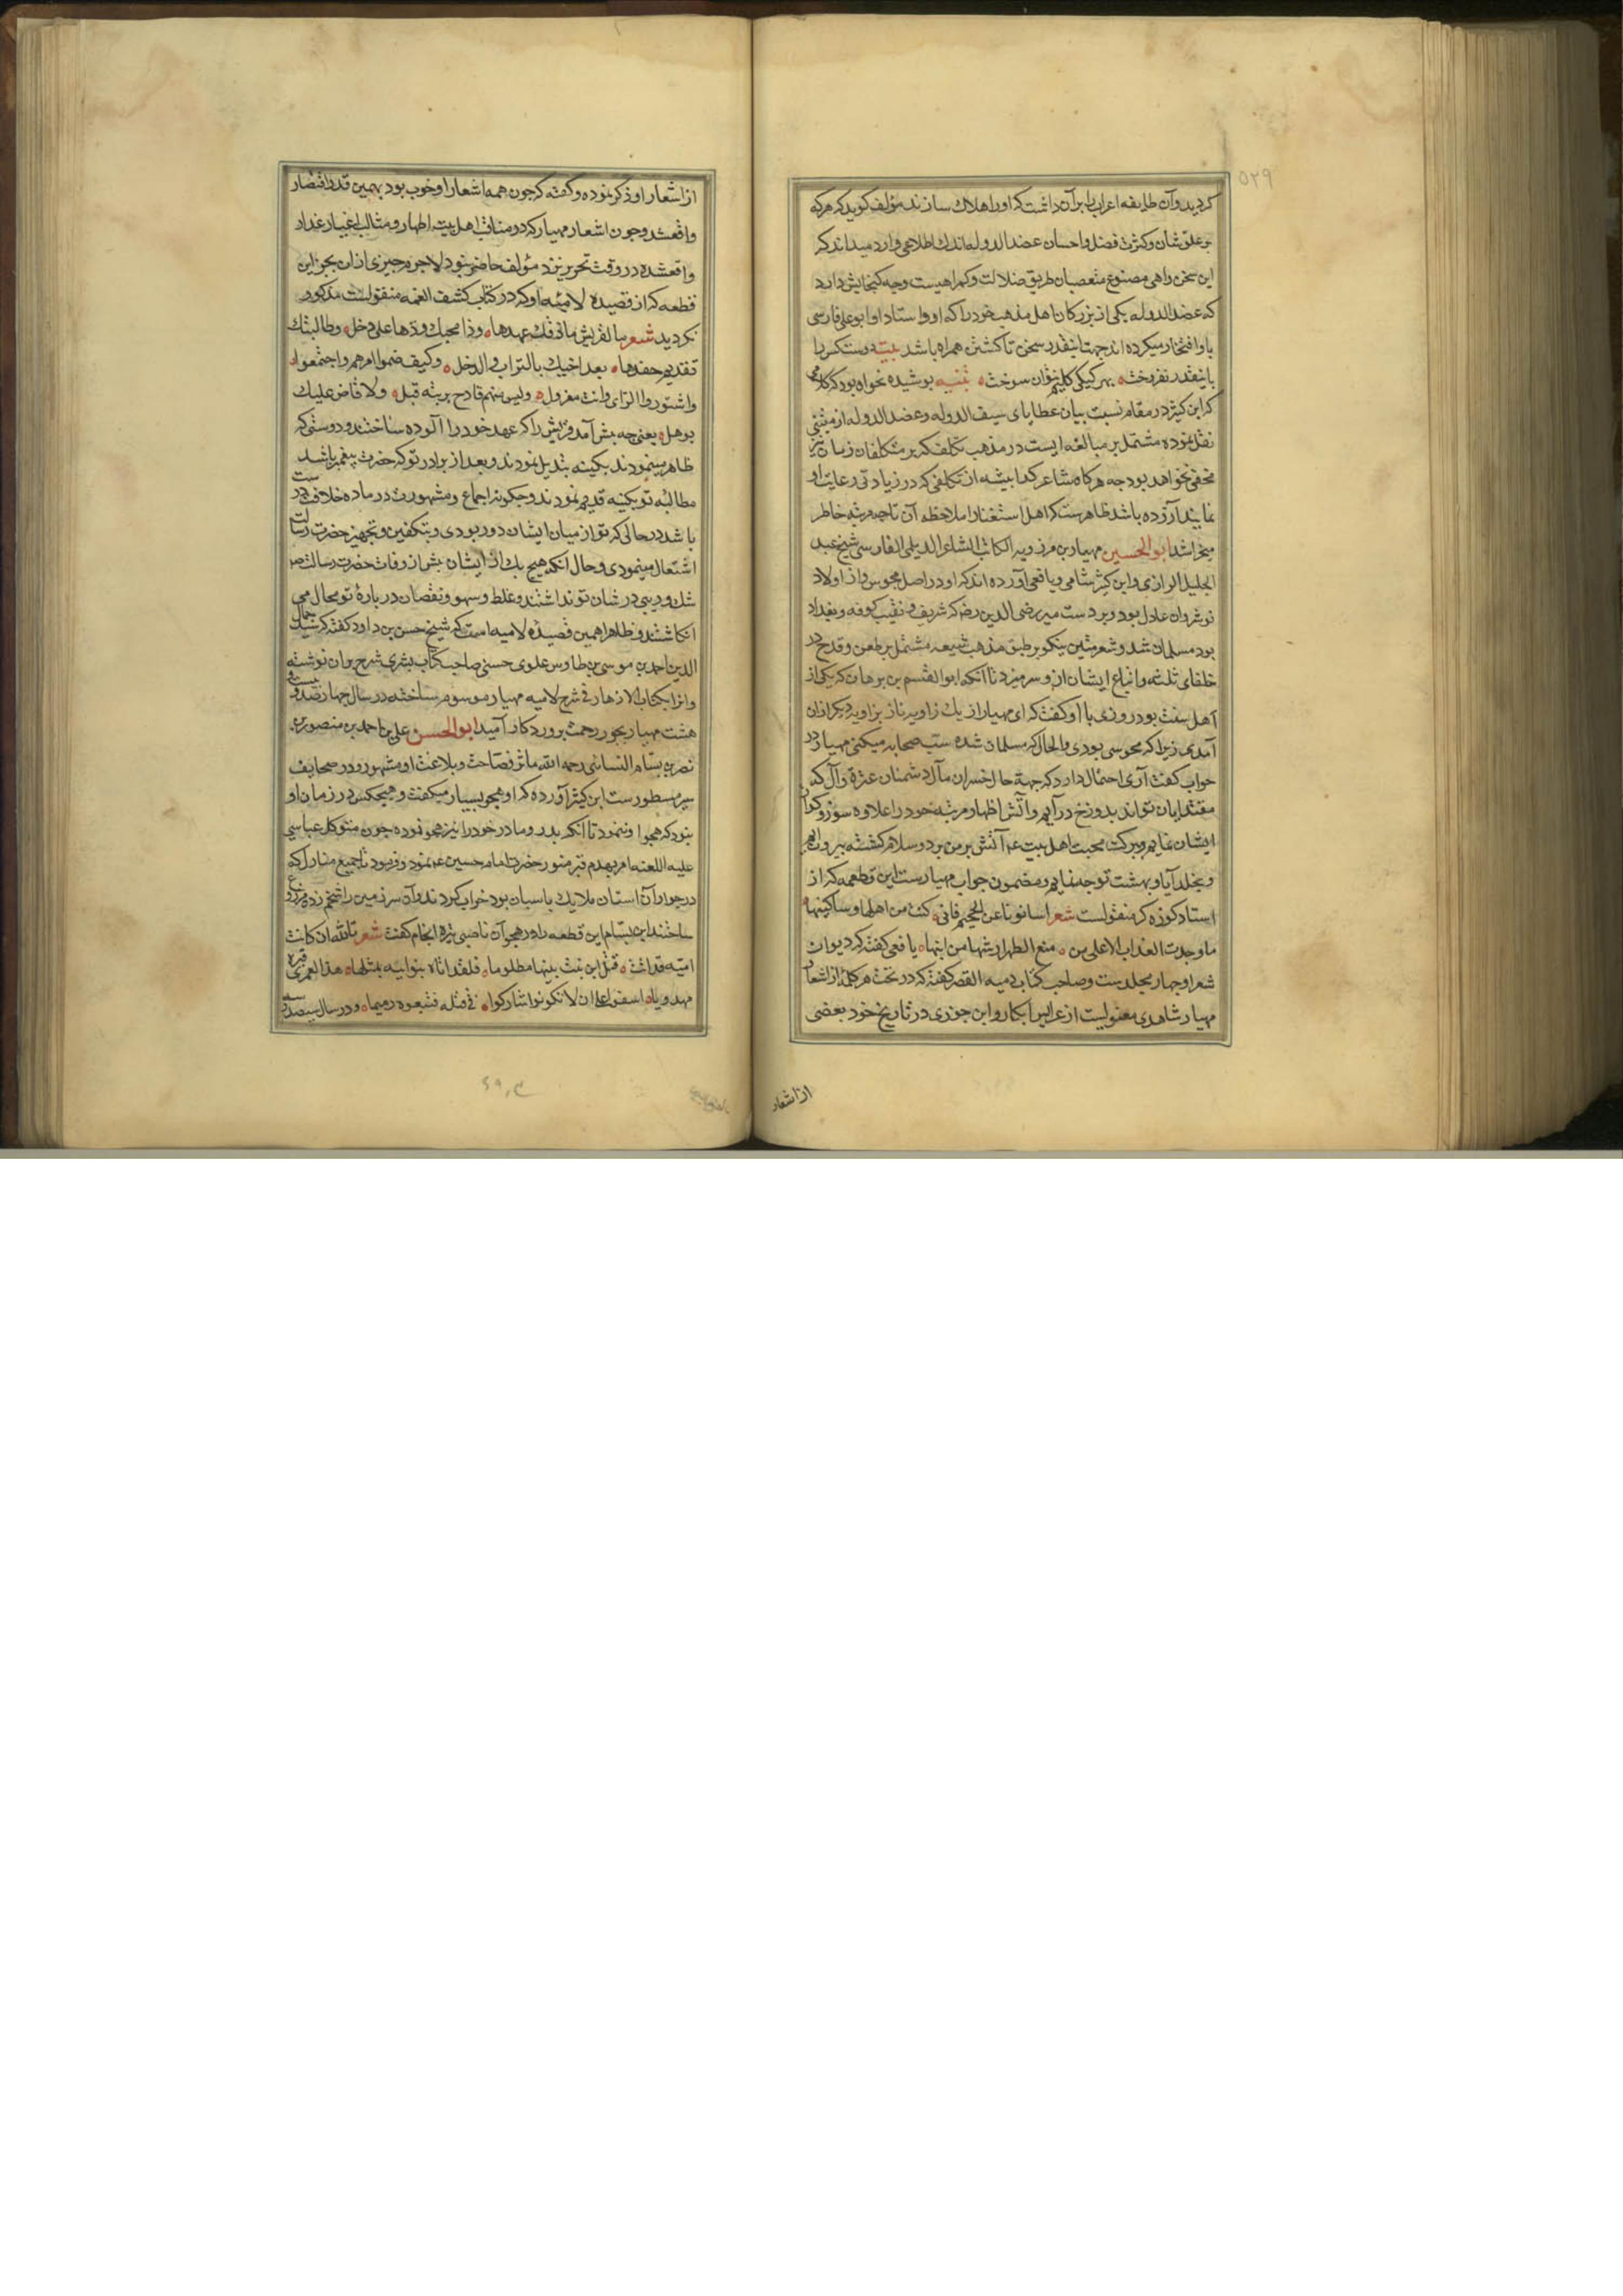 ۵۲۹
کردید وآن طایفه اعراب را برآن داشت که اورا هلاک سازند مؤلف کوید که هرکه
بر علو شان وکثرت فضل واحسان عضد الدوله اندک اطلاعی دارد میداند که
این سخن واهی مصنوع متعصبان طریق ضلالت وکمراهیست وجه کنجایش دارد
که عضد الدوله یکی از بزرکان اهل مذهب خود را که او واستاد او ابو علی فارسی
باو افتخار میکرده اند جهت اینقدر سخن تا کشتن همراه باشد بیت دوست کس را
باینقدر نفروخت بهر کیکی کلیم نتوان سوخت تنبیه پوشیده نخواهد بود که کلامی
که ابن کثیر در مقام نسبت بیان عطایای سیف الدوله وعضد الدوله از متنبی
نقل نموده مشتمل بر مبالغه ایست در مذهب تکلف که بر متکلفان زمان نیز
مخفی نخواهد بود چه هرکاه شاعر کدا پیشه از تکلفی که در زیادتی رعایت او
نمایند آزرده باشد ظاهرست که اهل استغنا را ملاحظه آن تا چه مرتبه خاطر
میخراشد ابو الحسین مهیار بن مرزویه الکاتب الشاعر الدیلمی الفارسی شیخ عبد
الجلیل الرازی وابن کثیر شامی ویافعی آورده اند که او در اصل مجوس واز اولاد
نوشروان عادل بود وبر دست میر رضی الدین رضه که شریف ونقیب کوفه وبغداد
بود مسلمان شد وشعر متین نیکو بر طبق مذهب شیعه مشتمل بر طعن وقدح در
خلفای ثلثه واتباع ایشان ازو سر میزد تا آنکه ابو القسم بن برهان که یکی از
اهل سنت بود روزی با او کفت که ای مهیار از یک زاویه نار بزاویه دیکر ازان
آمدی زیرا که مجوسی بودی والحال که مسلمان شده سب صحابه میکنی مهیار در
جواب کفت آری احتمال دارد که جهة حال خسران مآل دشمنان عترة وآل که
مقتدایان تواند بدوزخ درآیم وآتش اظهار مرتبه خود را علاوه سوز وکداز
ایشان نمایم وببرکت محبت اهل بیت ع آتش بر من برد وسلام کشته بیرون آیم
وبخلد آباد بهشت توجه نمایم ومضمون جواب مهیارست این قطعه که از
استاد کوزه کر منقولست شعر
ما وجدت العذاب الاعلی من منع الطهر ارثها من ابنها یافعی کفته که دیوان
شعر او چهار مجلدست وصاحب کتاب دمیه القصر کفته که در تحت هر کلمه از اشعار
مهیار شاهدی معنویست از عرایس ابکار وابن جوزی در تاریخ خود بعضی
از اشعار
از اشعار او ذکر نموده وکفته که چون همه اشعار او خوب بود بهمین قدر اقتصار
واقعشد وچون اشعار مهیار که در مناقب اهل بیت اطهار ومثالب اغیار غدار
واقعشده در وقت تحریر نزد مؤلف حاضر نبود لاجرم چیزی ازان بجز این
قطعه که از قصیده لامیه او که در کتاب کشف الغمه منقولست مذکور
نکردید شعر ما لقریش ماذقتک عهدها وذا محبک ودها علی دخل وطالبتک
تقدیم حقدها بعد اخیک بالتراب والدخل وکیف ضموا امرهم واجتمعوا
واشتوروا الرای وانت معزول ولیس منهم قادح بریبه قبل ولا قاض علیک
بوهل یعنی چه پیش آمد قریش را که عهد خود را آلوده ساختند ودوستی که
ظاهر مینمودند بکینه بتدیل نمودند وبعد از برادر تو که حضرت پیغمبر باشد
مطالبه تو بکینه قدیم نمودند وچکونه اجماع ومشورت در ماده خلافت در ست
باشد در حالی که تو از میان ایشان دور بودی وبتکفین وتجهیز حضرت رسالت
اشتغال مینمودی وحال آنکه هیچ یک از ایشان پیش از وفات حضرت رسالت ص
شک وریبی در شان تو نداشتند وغلط وسهو ونقصان در باره تو محال می
انکاشتند وظاهرا همین قصیده لامیه است که شیخ حسن بن داود کفته که سید جمال
الدین احمد بن موسی بن طاوس علوی حسنی صاحب کتاب بشری شرح بران نوشته
وانرا بکتاب الازهار فی شرح لامیه مهیار موسوم ساخته در سال چهارصد وبیست و
هشت مهیار بجوار رحمت پروردکار آمید ابو الحسن علی بن احمد بن منصور بن
نصر بن بسام البسامی رحمه الله مآثر فصاحت وبلاغت او مشهور ودر صحایف
سیر مسطورست ابن کثیر آورده که او هجو بسیار میکفت وهیچکس در زمان او
نبود که هجو او ننمود تا آنکه پدر ومادر خود را نیز هجو نموده چون متوکل عباسی
علیه اللعنه امر بهدم قبر منور حضرت امام حسین ع نمود وفرمود تا جمیع منازل که
در جوار آن آستان ملایک پاسبان بود خراب کردند وآن سرزمین را شخم زده مزروع
ساختند ابن بسام این قطعه را در هجو آن ناصبی تیره انجام کفت شعر تالله ان کانت
امیه قد اتت قتل ابن بنت نبیها مظلوما فلقد اتاه بنو ابیه بمثلها هذا لعمری قبره
مهدوما اسفوا علی ان لا تکونوا شارکوا فی قتله فتتبعوه رمیما ودر سال سیصد و